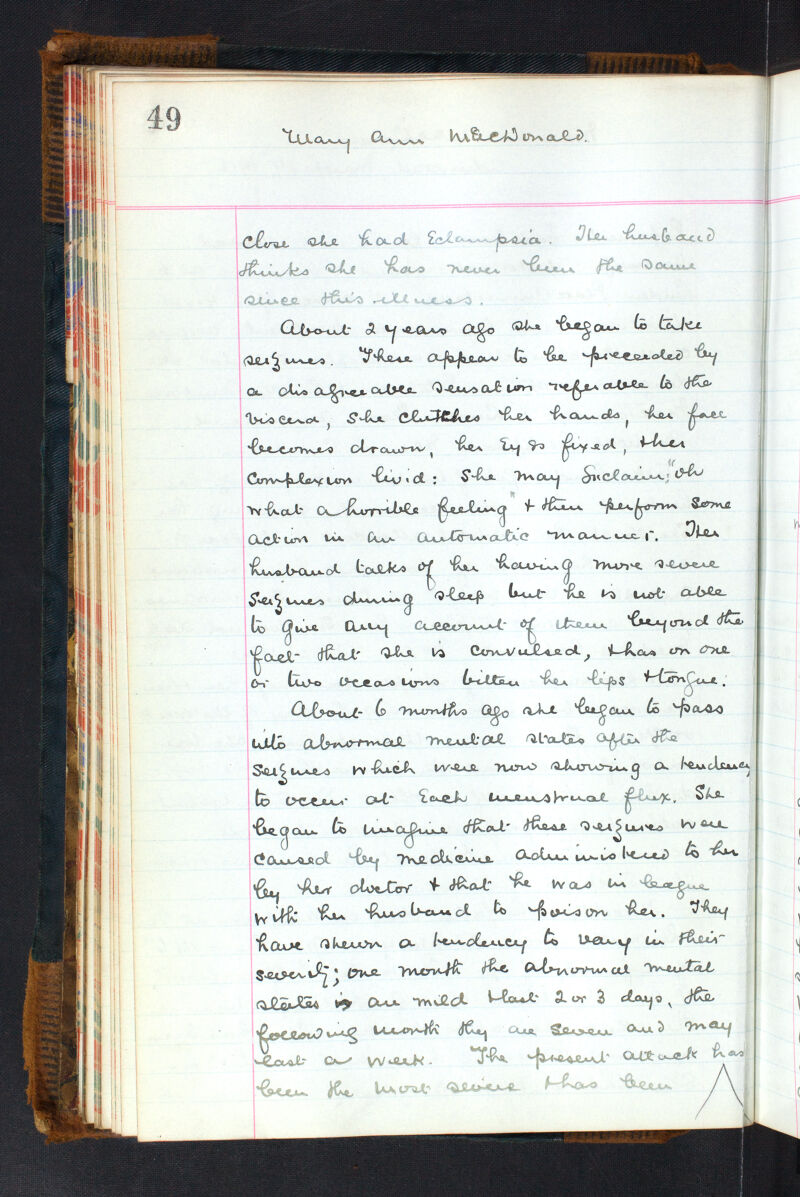 49
Mary Ann MacDonald.
close she had Eclampsia. Her husband
thinks she has never been the same
since this illness.
About 2 years ago she began to take
seizures. These appear to be preceeded by
a disagreeable sensation referable to the
viscera, She clutches her hands, her face
becomes drawn, her Eyes fixed, & her
complexion livid: She may Exclaim, "oh
what a horrible feeling" & then perform some
action in an automatic manner. Her
husband talks of her having more severe
seizures during sleep but he is not able
to give any account of them beyond the
fact that she is convulsed, & has on one
or two occasions bitten her lips & tongue.
About 6 months ago she began to pass
into abnormal mental states after the
seizures which were now showing a tendency
to occur at Each menstrual flux. She
began to imagine that these seizures were
caused by medicine administered to her
by her doctor & that he was in league
with her husband to poison her. They
have shewn a tendency to vary in their
severity; one month the abnormal mental
states are mild & last 2 or 3 days, the
following month they are severe and may
last a week. The present attack has
been the most severe & has been